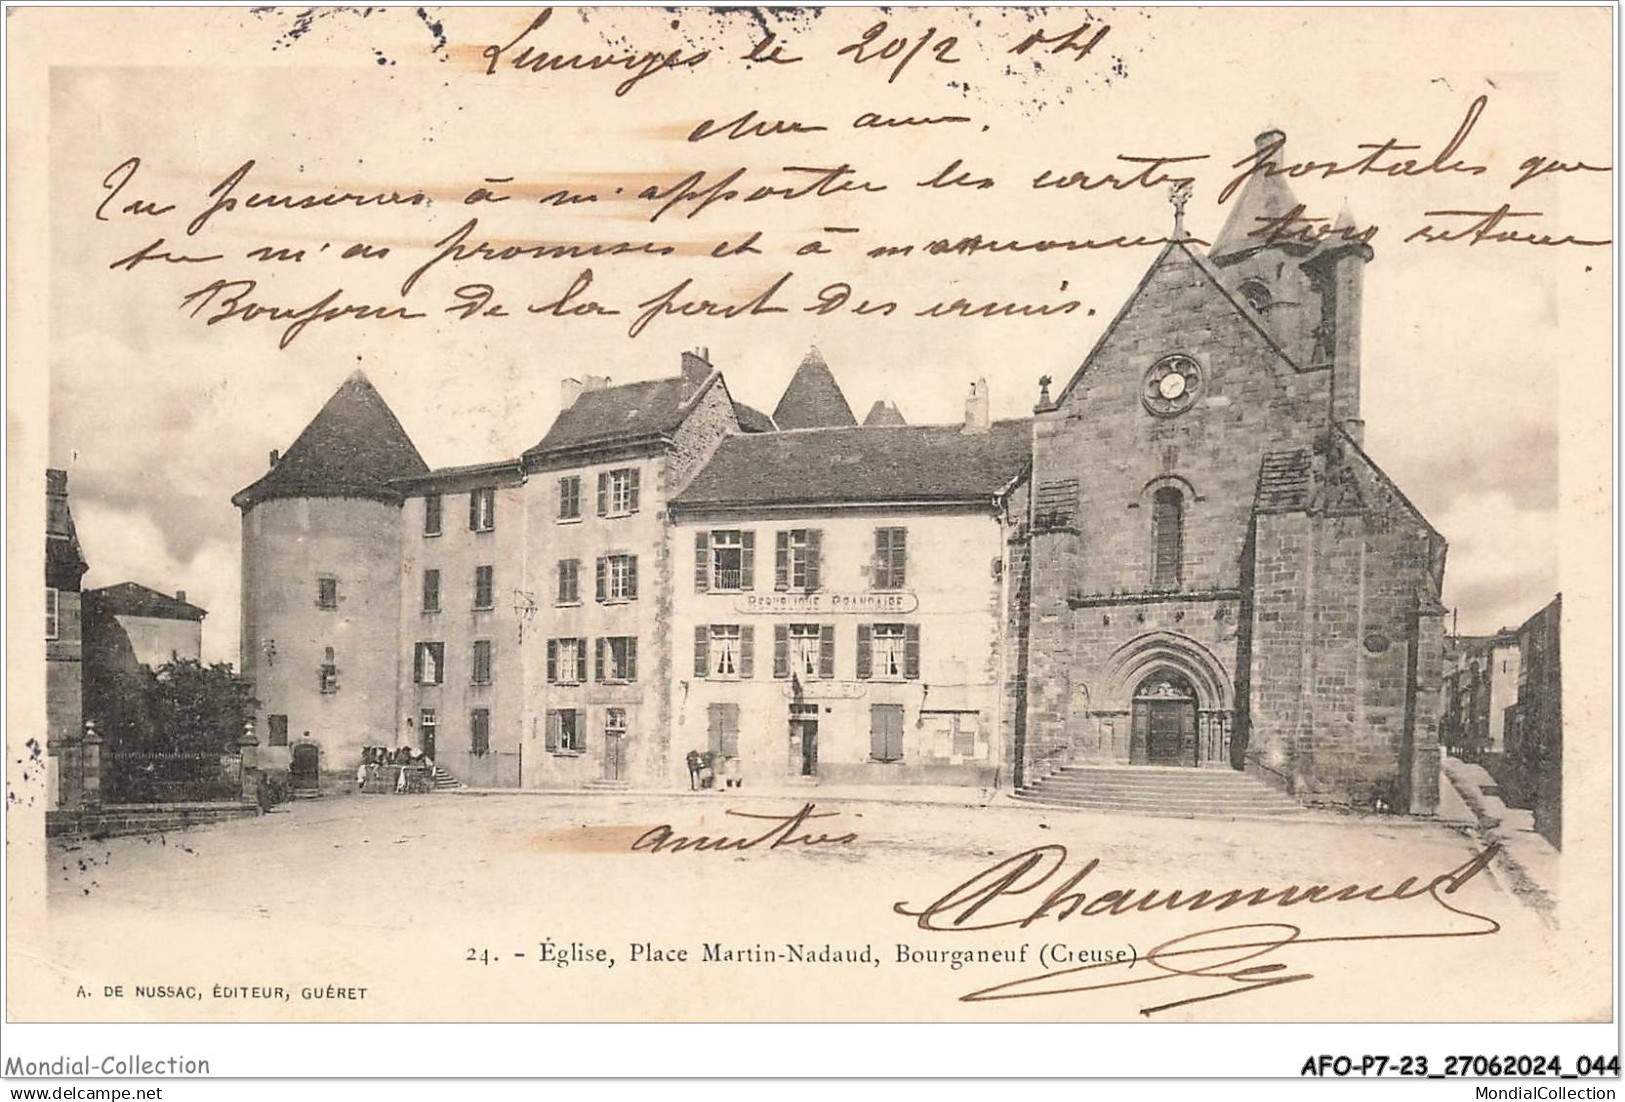 Limoges le 20/2 04
cher ami.
Tu penseras à m'apporter les cartes postales que
tu m'as promises et à m'annoncer ton retour
Bonjour de la part des amis.
REPUBLIQUE FRANCAISE
amitiés
24. - Église, Place Martin-Nadaud, Bourganeuf (Creuse)
A. DE NUSSAC, ÉDITEUR, GUÉRET
Mondial-Collection
AFO-P7-23_27062024_044
MondialCollection
MondialCollection